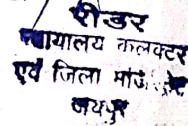 रीडर
न्यायालय कलक्टर
एवं जिला मजि
जयपुर